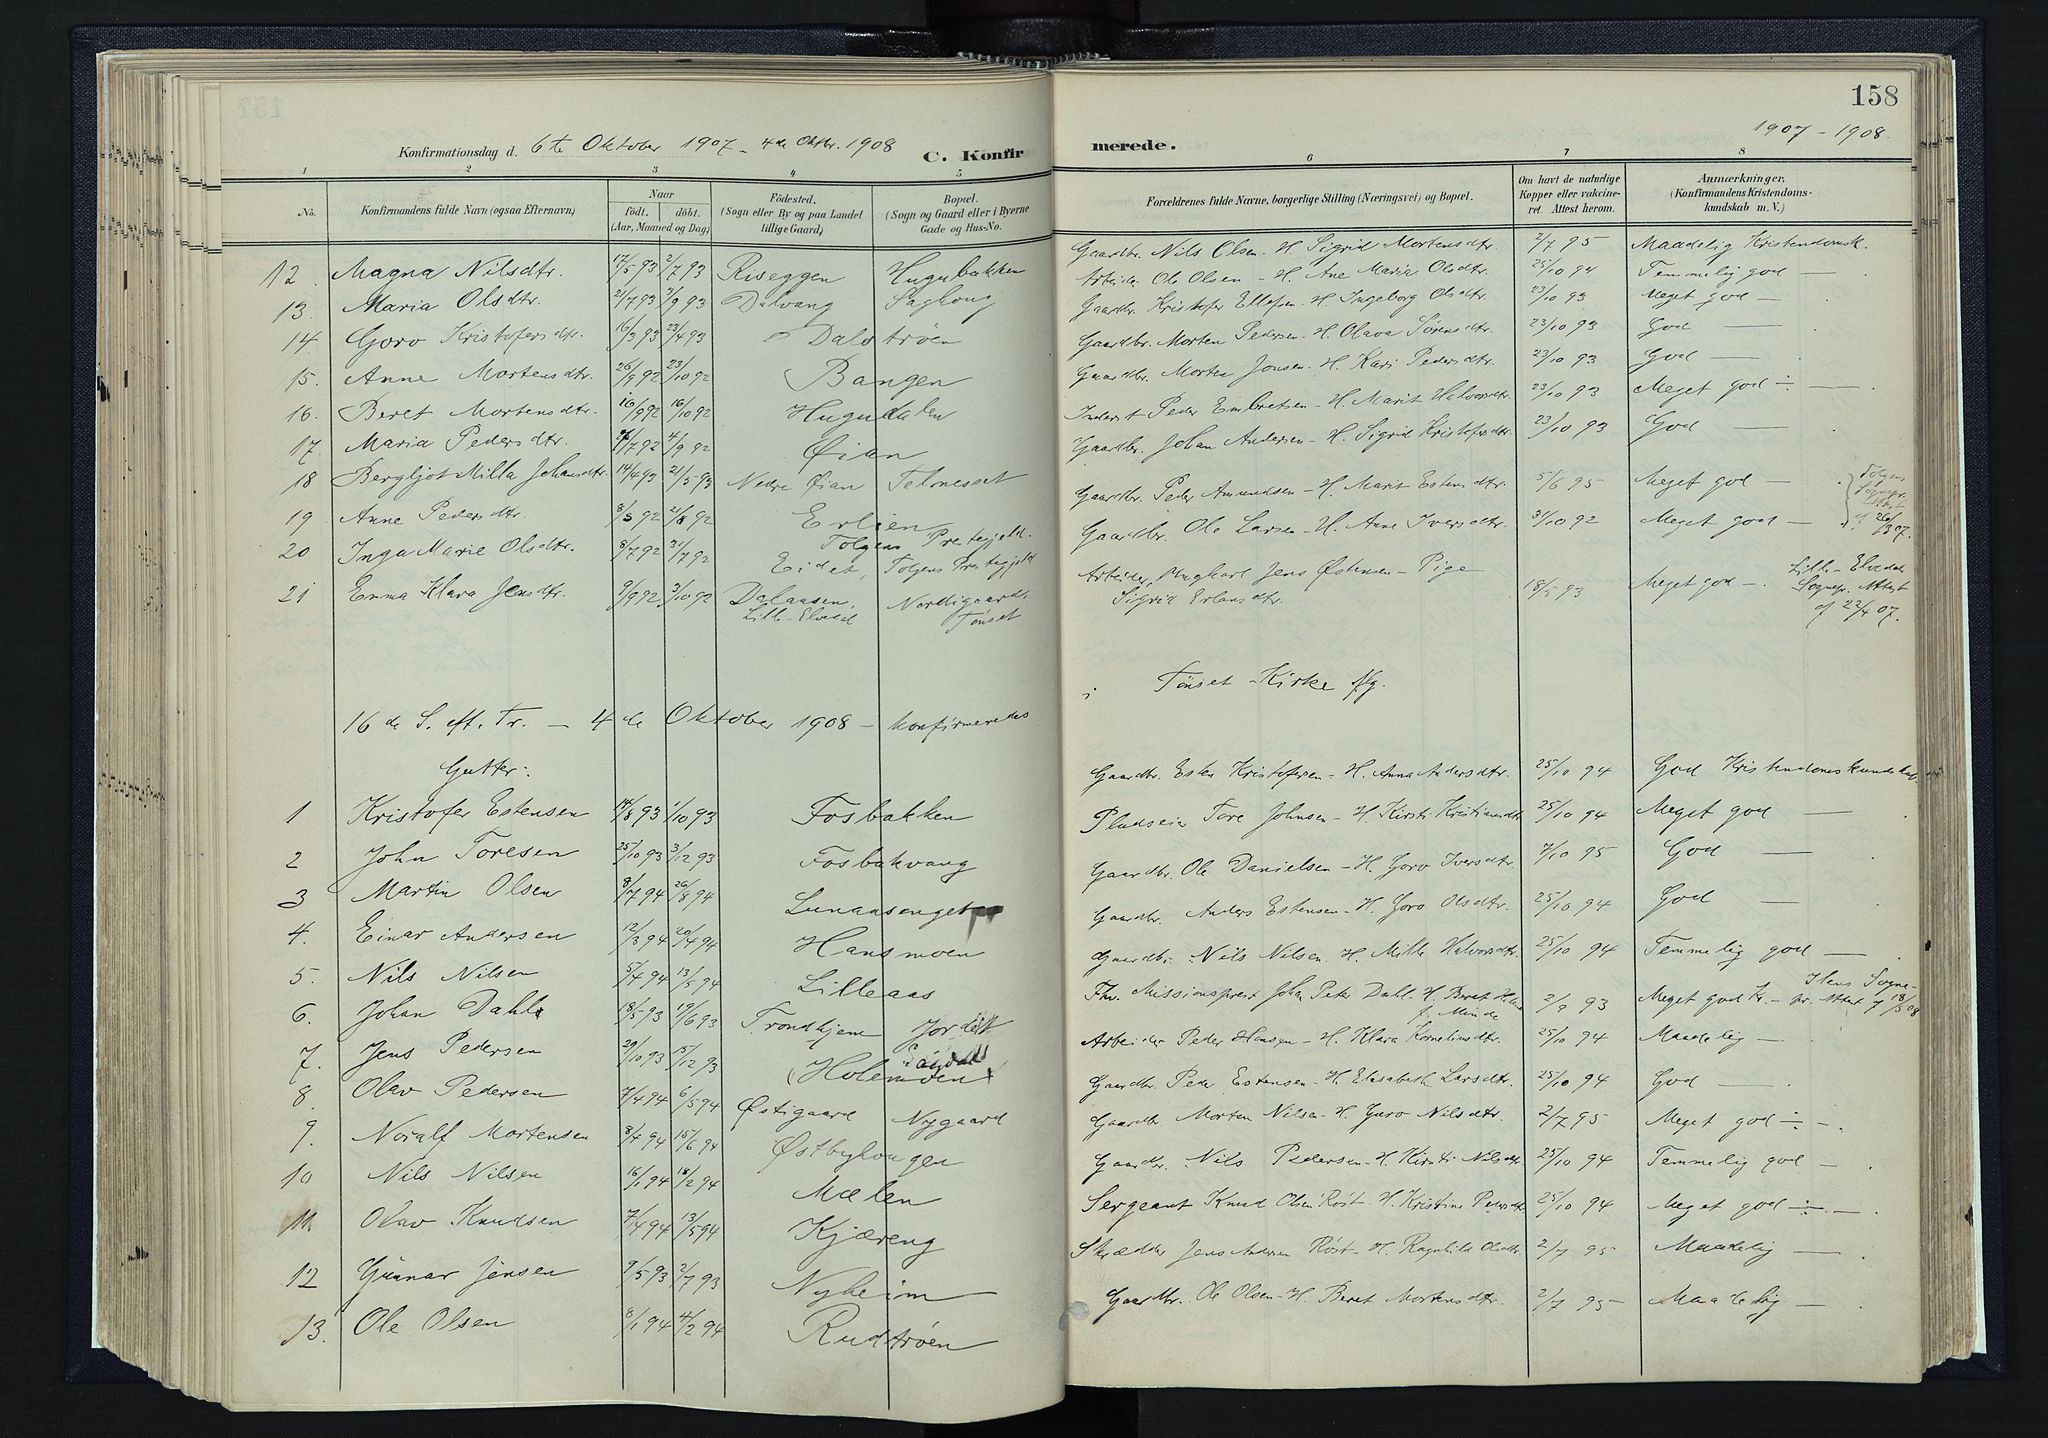 158
1907 - 1908.
Konfirmationsdag d. 6te Oktober 1907 - 4de Oktbr. 1908
C. Konfirmerede.
1 2 3 4 5 6 7 8
No.
Konfirmandens fulde Navn (ogsaa Efternavn)
Naar
födt. döbt.
(Aar, Maaned og Dag)
Födested.
(Sogn eller By og paa Landet
tillige Gaard)
Bopæl.
(Sogn og Gaard eller i Byerne
Gade og Hus-No.
Forældrenes fulde Navne, borgerlige Stilling (Næringsvei) og Bopæl.
Om havt de naturlige
Kopper eller vakcine-
ret. Attest herom.
Anmærkninger.
(Konfirmandens Kristendoms-
kundskab m. V.)
12. Magna Nilsdtr. 17/5 93 2/7 93 Riseggen Hugubakken Gaardbr. Nils Olsen - H. Sigrid Mortensdtr. 2/7 95 Maadelig Kristendomsk.
13. Maria Olsdtr. 21/7 93 3/9 93 Dalvang Arbeider Ole Olsen - H. Ane Maria Olsdtr. 25/10 94 Temmelig god —
14 Goro Kristofersdtr. 16/3 93 23/4 93 Dalstrøen Gaardbr. Kristofer Ellefsen - H. Ingeborg Olsdtr. 23/10 93 Meget god —
15. Anne Mortensdtr. 26/9 92 23/10 92 Bangen Gaardbr. Morten Pedersen - H. Olava Sørensdtr. 23/10 93 God —
16. Beret Mortensdtr. 16/9 92 16/10 92 Hugudalen Gaardbr. Morten Jonsen - H. Kari Pedersdtr. 23/10 93 God —
17. Maria Pedersdtr. /7 92 4/9 92 Øian Inderst Peder Embretsen - H. Marit Halvorsdtr. 23/10 93 Meget god ÷ —
18 Bergljot Milla Johansdtr. 14/4 93 21/5 93 Nedre Øian Telnesset Gaardbr. Johan Andersen - H. Sigrid Kristofersdtr. 23/10 93 God —
19. Anne Pedersdtr. 8/5 92 21/8 92 Erlien Tolgens Prestegjeld. Gaardbr. Peder Amundsen - H. Marit Estensdtr. 5/6 95 Meget god —
20 Inga Marie Olsdtr. 8/7 92 31/7 92 Eidet, Tolgens Prestegjeld Gaardbr. Ole Larsen - H. Anne Iversdtr. 31/10 92 Meget god —
Tolgens Sognepr. Attest af 26/3 07.
21 Emma Klara Jensdtr. 9/9 92 3/10 92 Dalaasen, Lille-Elvedal Nordigaard, Tønset Arbeider Ungkarl Jens Østensen - Pige Sigrid Erlansdtr. 18/5 93 Meget god — Lille-Elvedal Sognepr. Attest af 22/4 07.
16de S. eft. Tr. — 4de Oktober 1908 - konfirmeredes i Tønset Kirke flg.
Gutter:
1 Kristofer Estensen 14/8 93 1/10 93 Fosbakken Gaardbr. Esten Kristofersen - H. Anna Andersdtr. 25/10 94 God Kristendomskundskab
2 John Toresen 25/10 93 3/12 93 Fosbakvang Pladseier Tore Johnsen - H. Kirsti Kristiansdtr 25/10 94 Meget god —
3 Martin Olsen 8/7 94 26/8 94 Lunaasenget Gaardbr. Ole Danielsen - H. Goro Iversdtr. 7/10 95 God —
4. Einar Andersen 12/3 94 20/4 94 Hansmoen Gaardbr. Anders Estensen - H. Goro Olsdtr. 25/10 94 God —
5. Nils Nilsen 5/4 94 13/5 94 Lilleaas Gaardbr. Nils Nilsen - H. Mille Halvorsdtr. 25/10 94 Temmelig god —
6. Johan Dahl 18/5 93 19/6 93 Trondhjem Jordet Fhv. Missionsprest Johan Peter Dahl - H. Beret f. Minde 2/9 93 Meget god Kr. - Ilens Sognepr. Attest af 18/5 08
7. Jens Pedersen 29/10 93 15/12 93 Holemoen Arbeider Peder Hansen - H. Klara Korneliusdtr. 25/10 94 Maadelig —
8. Olav Pedersen 7/4 94 6/5 94 Østigaard Nygaard Gaardbr. Peder Estensen - H. Elisabeth Larsdtr. 25/10 94 God —
9. Noralf Mortensen 8/4 94 15/6 94 Østbyhaugen Gaardbr. Morten Nilsen - H. Guro Nilsdtr. 2/7 95 Meget god ÷ —
10 Nils Nilsen 16/1 94 18/2 94 Mælen Gaardbr. Nils Pedersen - H. Kirsti Nilsdtr 25/10 94 Temmelig god —
11. Olav Knudsen 7/4 94 13/5 94 Kjæreng Sergeant Knud Olsen Røst - H. Kristine Pedersdtr 25/10 94 Meget god ÷ —
12 Gunnar Jensen 9/5 93 2/7 93 Nyheim Skrædder Jens Andersen Røst - H. Ragnhild Olsdtr. 2/7 95 Maadelig —
13. Ole Olsen 8/1 94 4/2 94 Rudstrøen Gaardbr. Ole Olsen - H. Beret Mortensdtr. 2/7 95 - Maadelig —